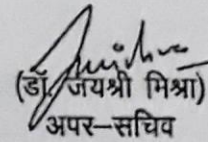 (डॉ. जयश्री मिश्रा)
अपर–सचिव